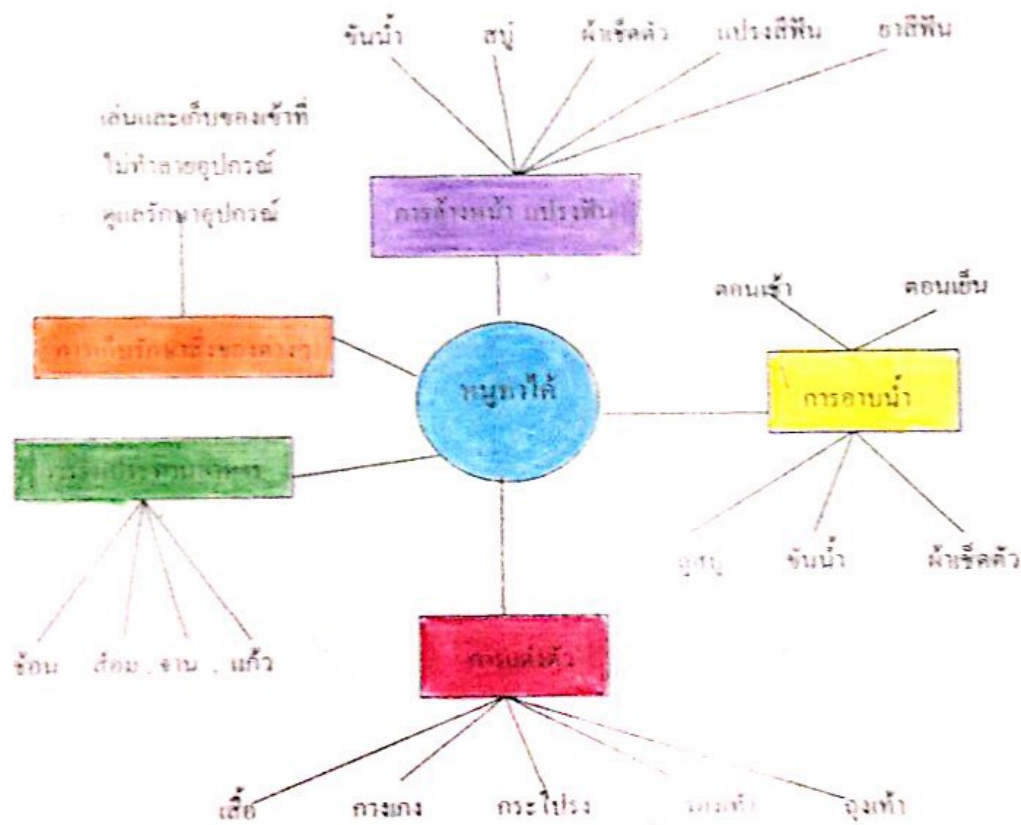 ขันน้ำ สบู่ ผ้าเช็ดตัว แปรงสีฟัน ยาสีฟัน
เล่นและเก็บของเข้าที่
ไม่ทำลายอุปกรณ์
ดูแลรักษาอุปกรณ์
การล้างหน้า แปรงฟัน
ตอนเช้า ตอนเย็น
การเก็บรักษาสิ่งของต่างๆ
หนูทำได้
การอาบน้ำ
ถูสบู่ ขันน้ำ ผ้าเช็ดตัว
ช้อน ส้อม จาน แก้ว
การแต่งตัว
เสื้อ กางเกง กระโปรง รองเท้า ถุงเท้า